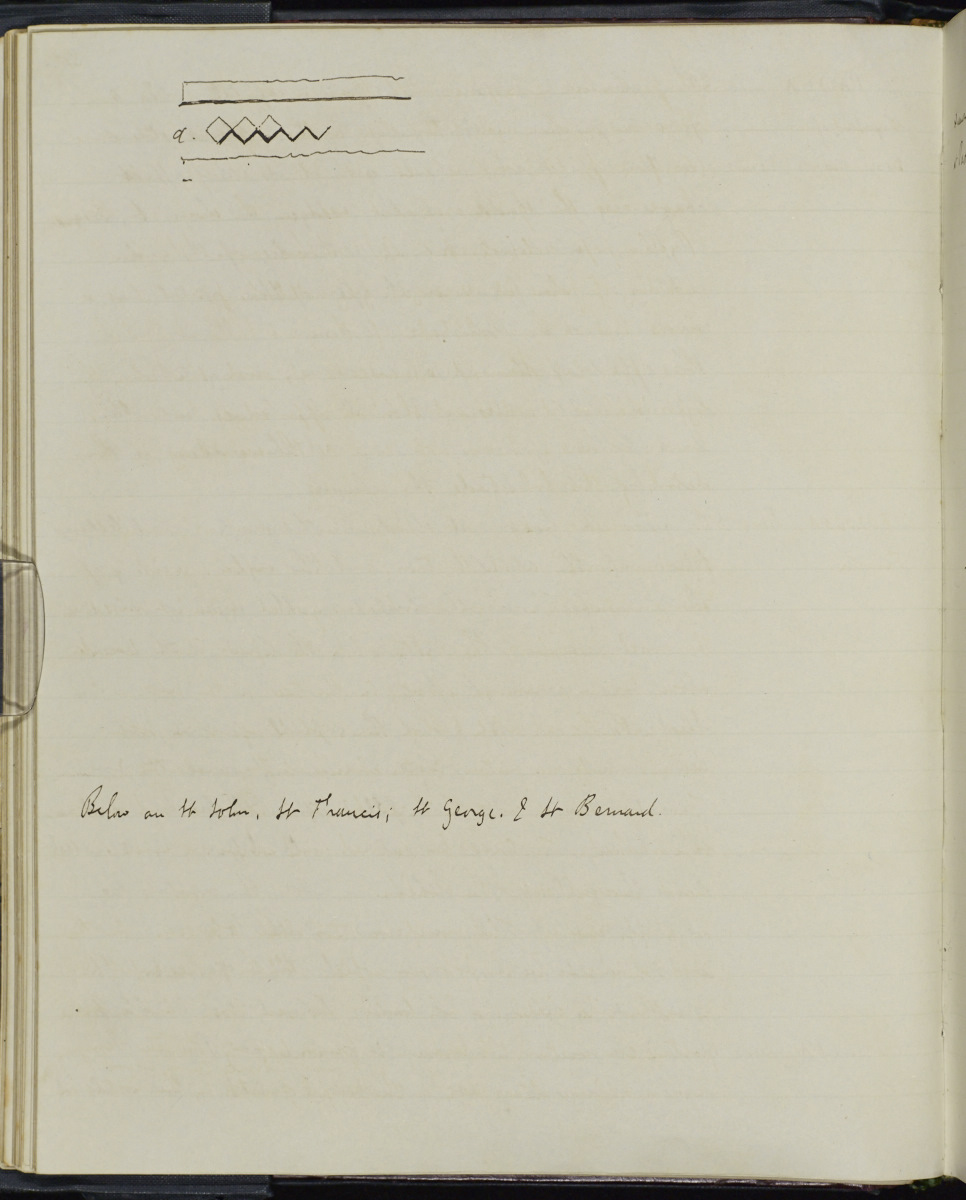 a.
Below are St John, St Francis; St George. & St Bernard.